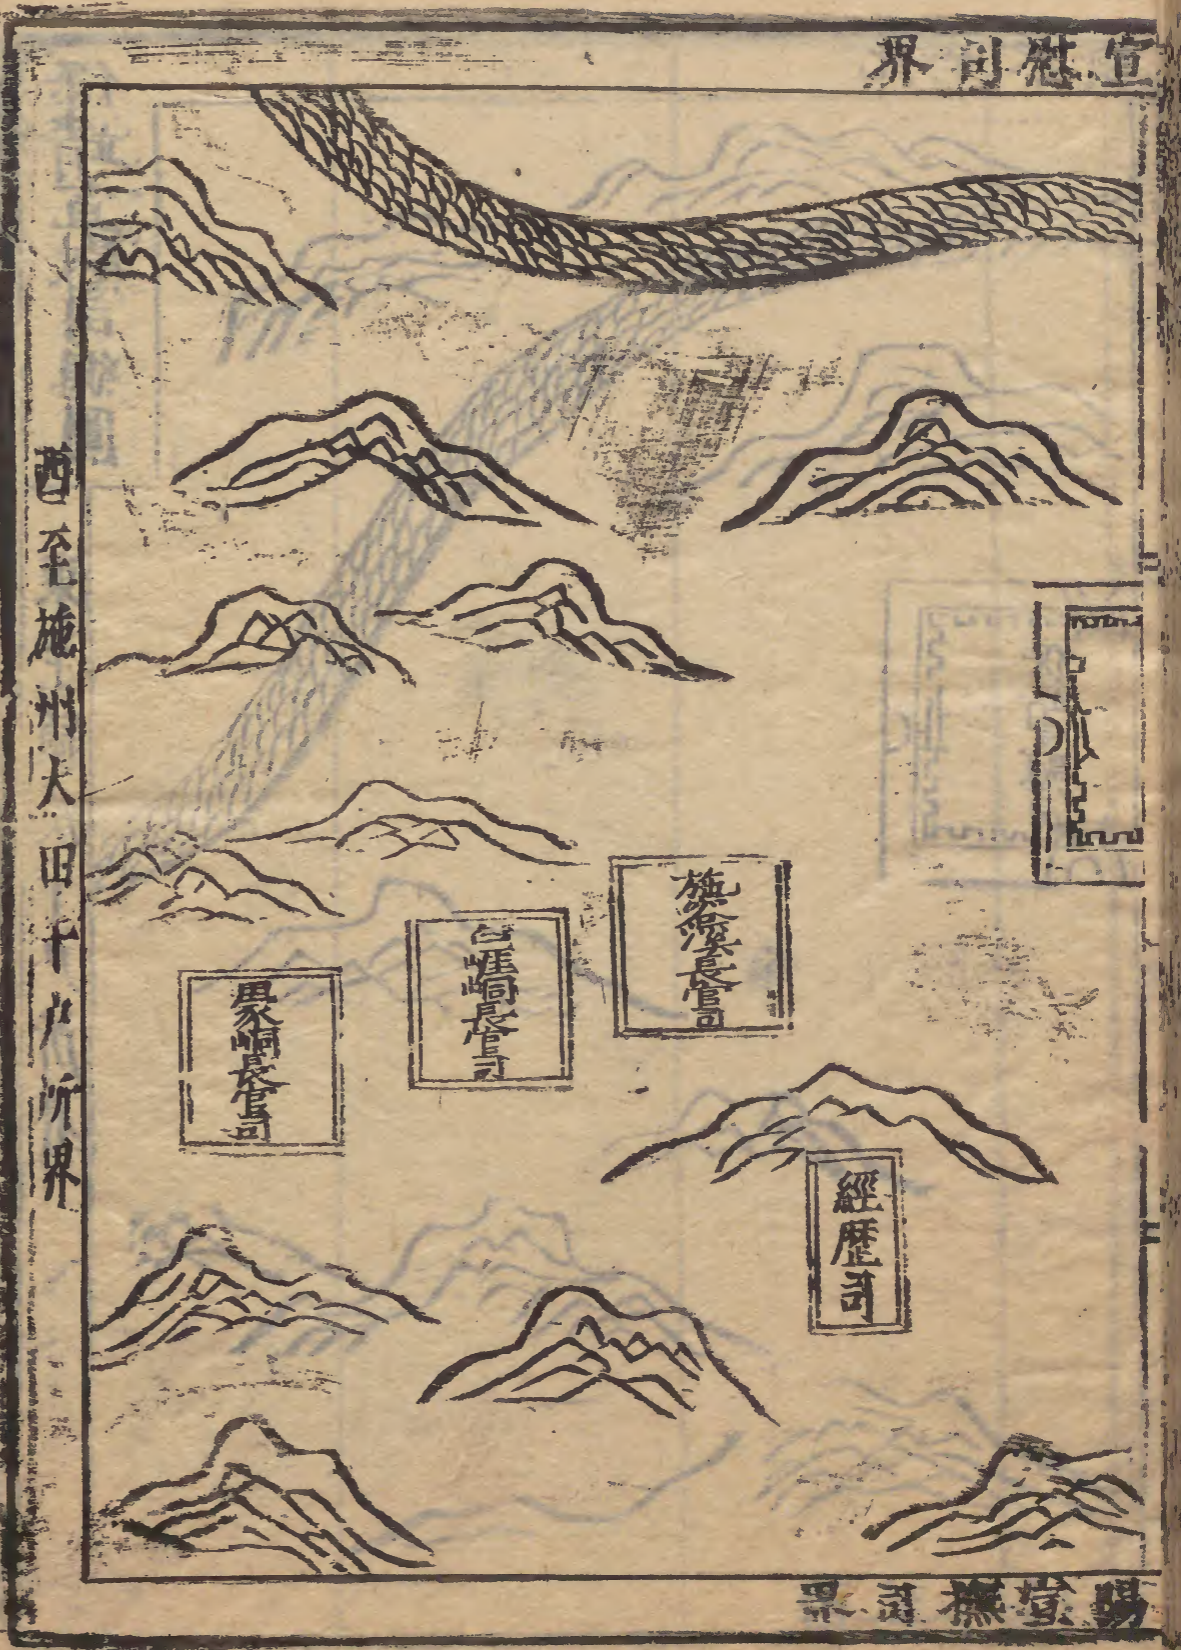 宣慰司界
施溶溪長官司
白崕峒長官司
田家峒長官司
經歷司
西至施州大田千户所界
陽宣撫司界